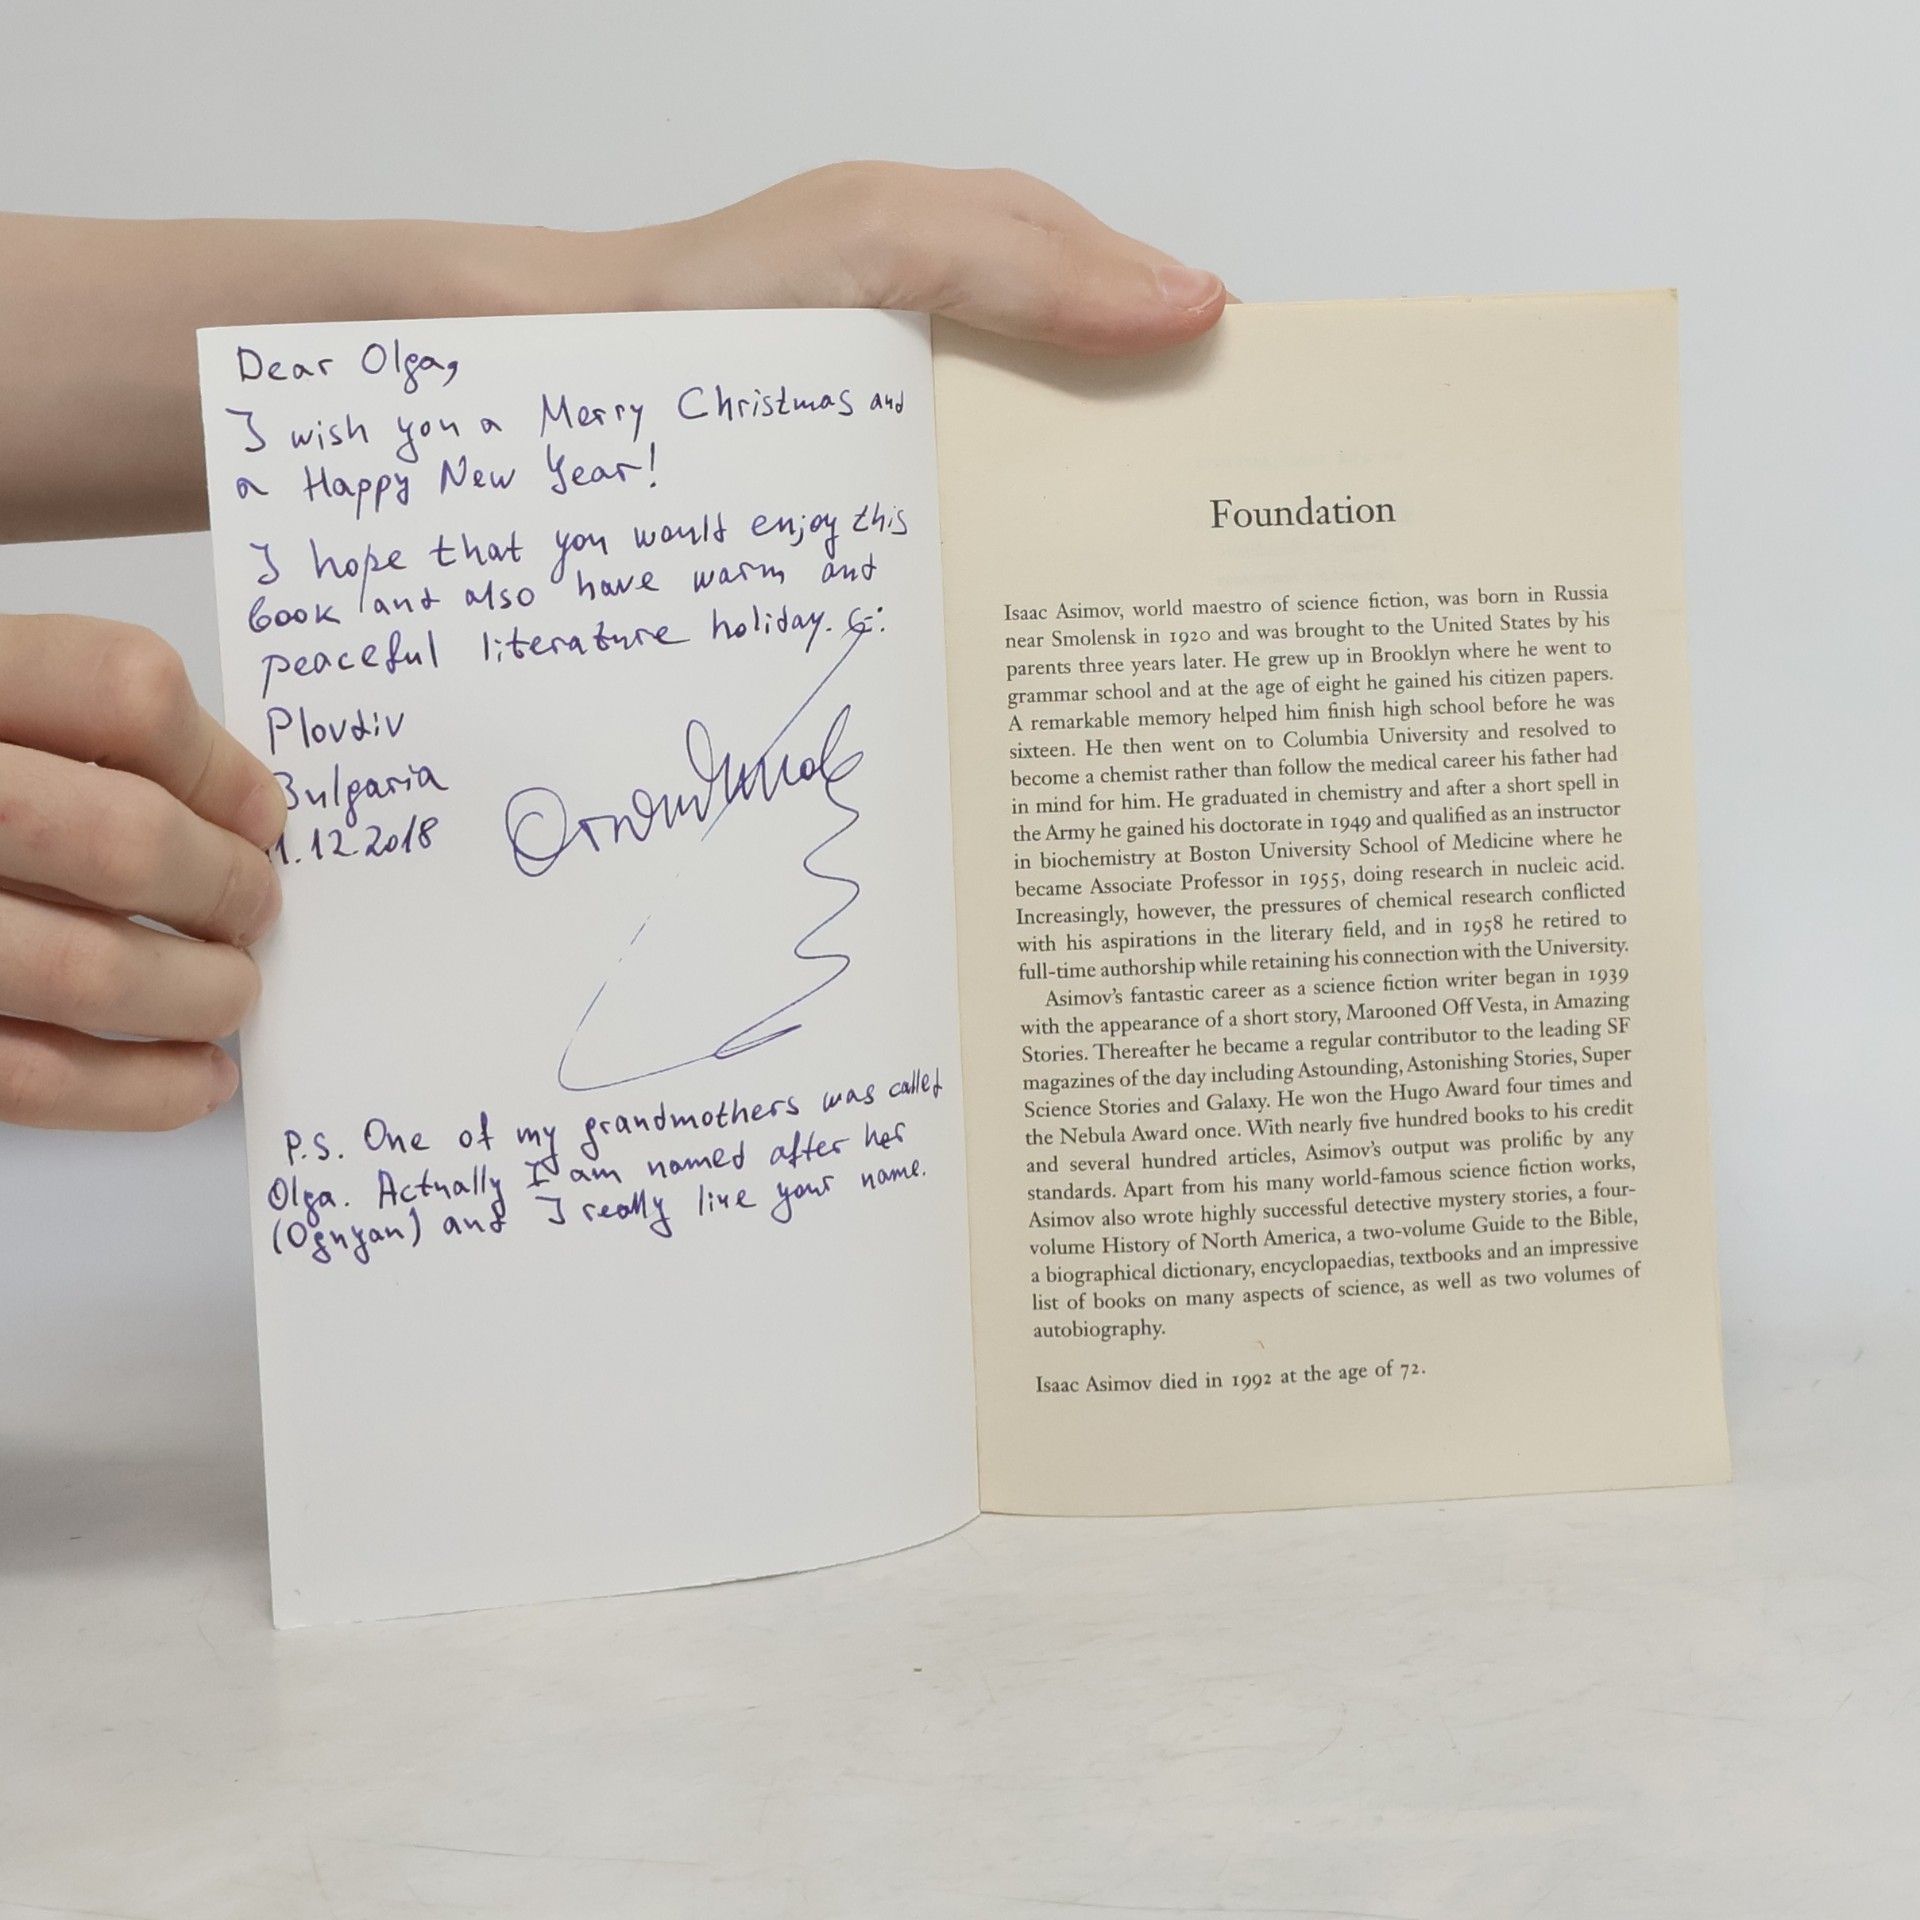 Dear Olga,
I wish you a Merry Christmas and
a Happy New Year!
I hope that you would enjoy this
book and also have warm and
peaceful literature holiday. (-:
Plovdiv
Bulgaria
1.12.2018
P.S. One of my grandmothers was called
Olga. Actually I am named after her
(Ognyan) and I really like your name.
Foundation
Isaac Asimov, world maestro of science fiction, was born in Russia
near Smolensk in 1920 and was brought to the United States by his
parents three years later. He grew up in Brooklyn where he went to
grammar school and at the age of eight he gained his citizen papers.
A remarkable memory helped him finish high school before he was
sixteen. He then went on to Columbia University and resolved to
become a chemist rather than follow the medical career his father had
in mind for him. He graduated in chemistry and after a short spell in
the Army he gained his doctorate in 1949 and qualified as an instructor
in biochemistry at Boston University School of Medicine where he
became Associate Professor in 1955, doing research in nucleic acid.
Increasingly, however, the pressures of chemical research conflicted
with his aspirations in the literary field, and in 1958 he retired to
full-time authorship while retaining his connection with the University.
Asimov's fantastic career as a science fiction writer began in 1939
with the appearance of a short story, Marooned Off Vesta, in Amazing
Stories. Thereafter he became a regular contributor to the leading SF
magazines of the day including Astounding, Astonishing Stories, Super
Science Stories and Galaxy. He won the Hugo Award four times and
the Nebula Award once. With nearly five hundred books to his credit
and several hundred articles, Asimov's output was prolific by any
standards. Apart from his many world-famous science fiction works,
Asimov also wrote highly successful detective mystery stories, a four-
volume History of North America, a two-volume Guide to the Bible,
a biographical dictionary, encyclopaedias, textbooks and an impressive
list of books on many aspects of science, as well as two volumes of
autobiography.
Isaac Asimov died in 1992 at the age of 72.